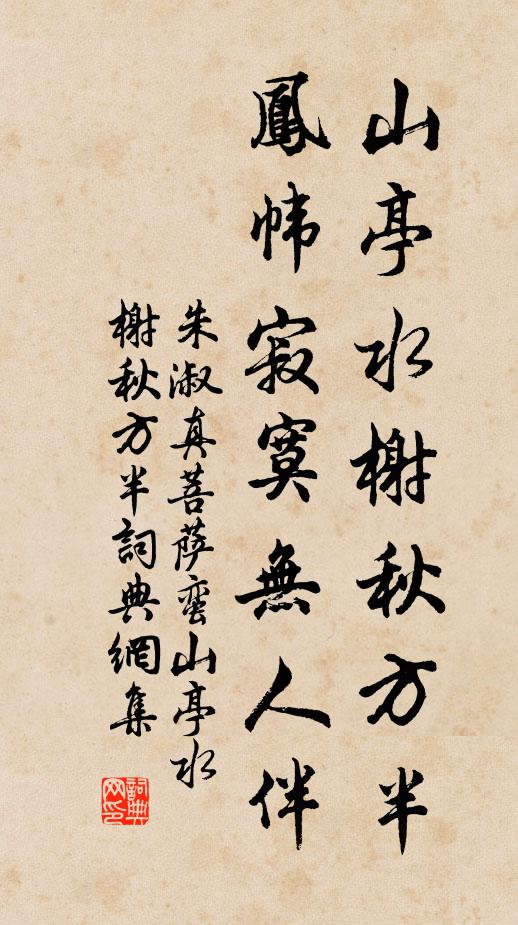 山亭水榭秋方半
鳳幃寂寞無人伴
朱淑真菩薩蛮山亭水
榭秋方半詞典網集
詞典
网印